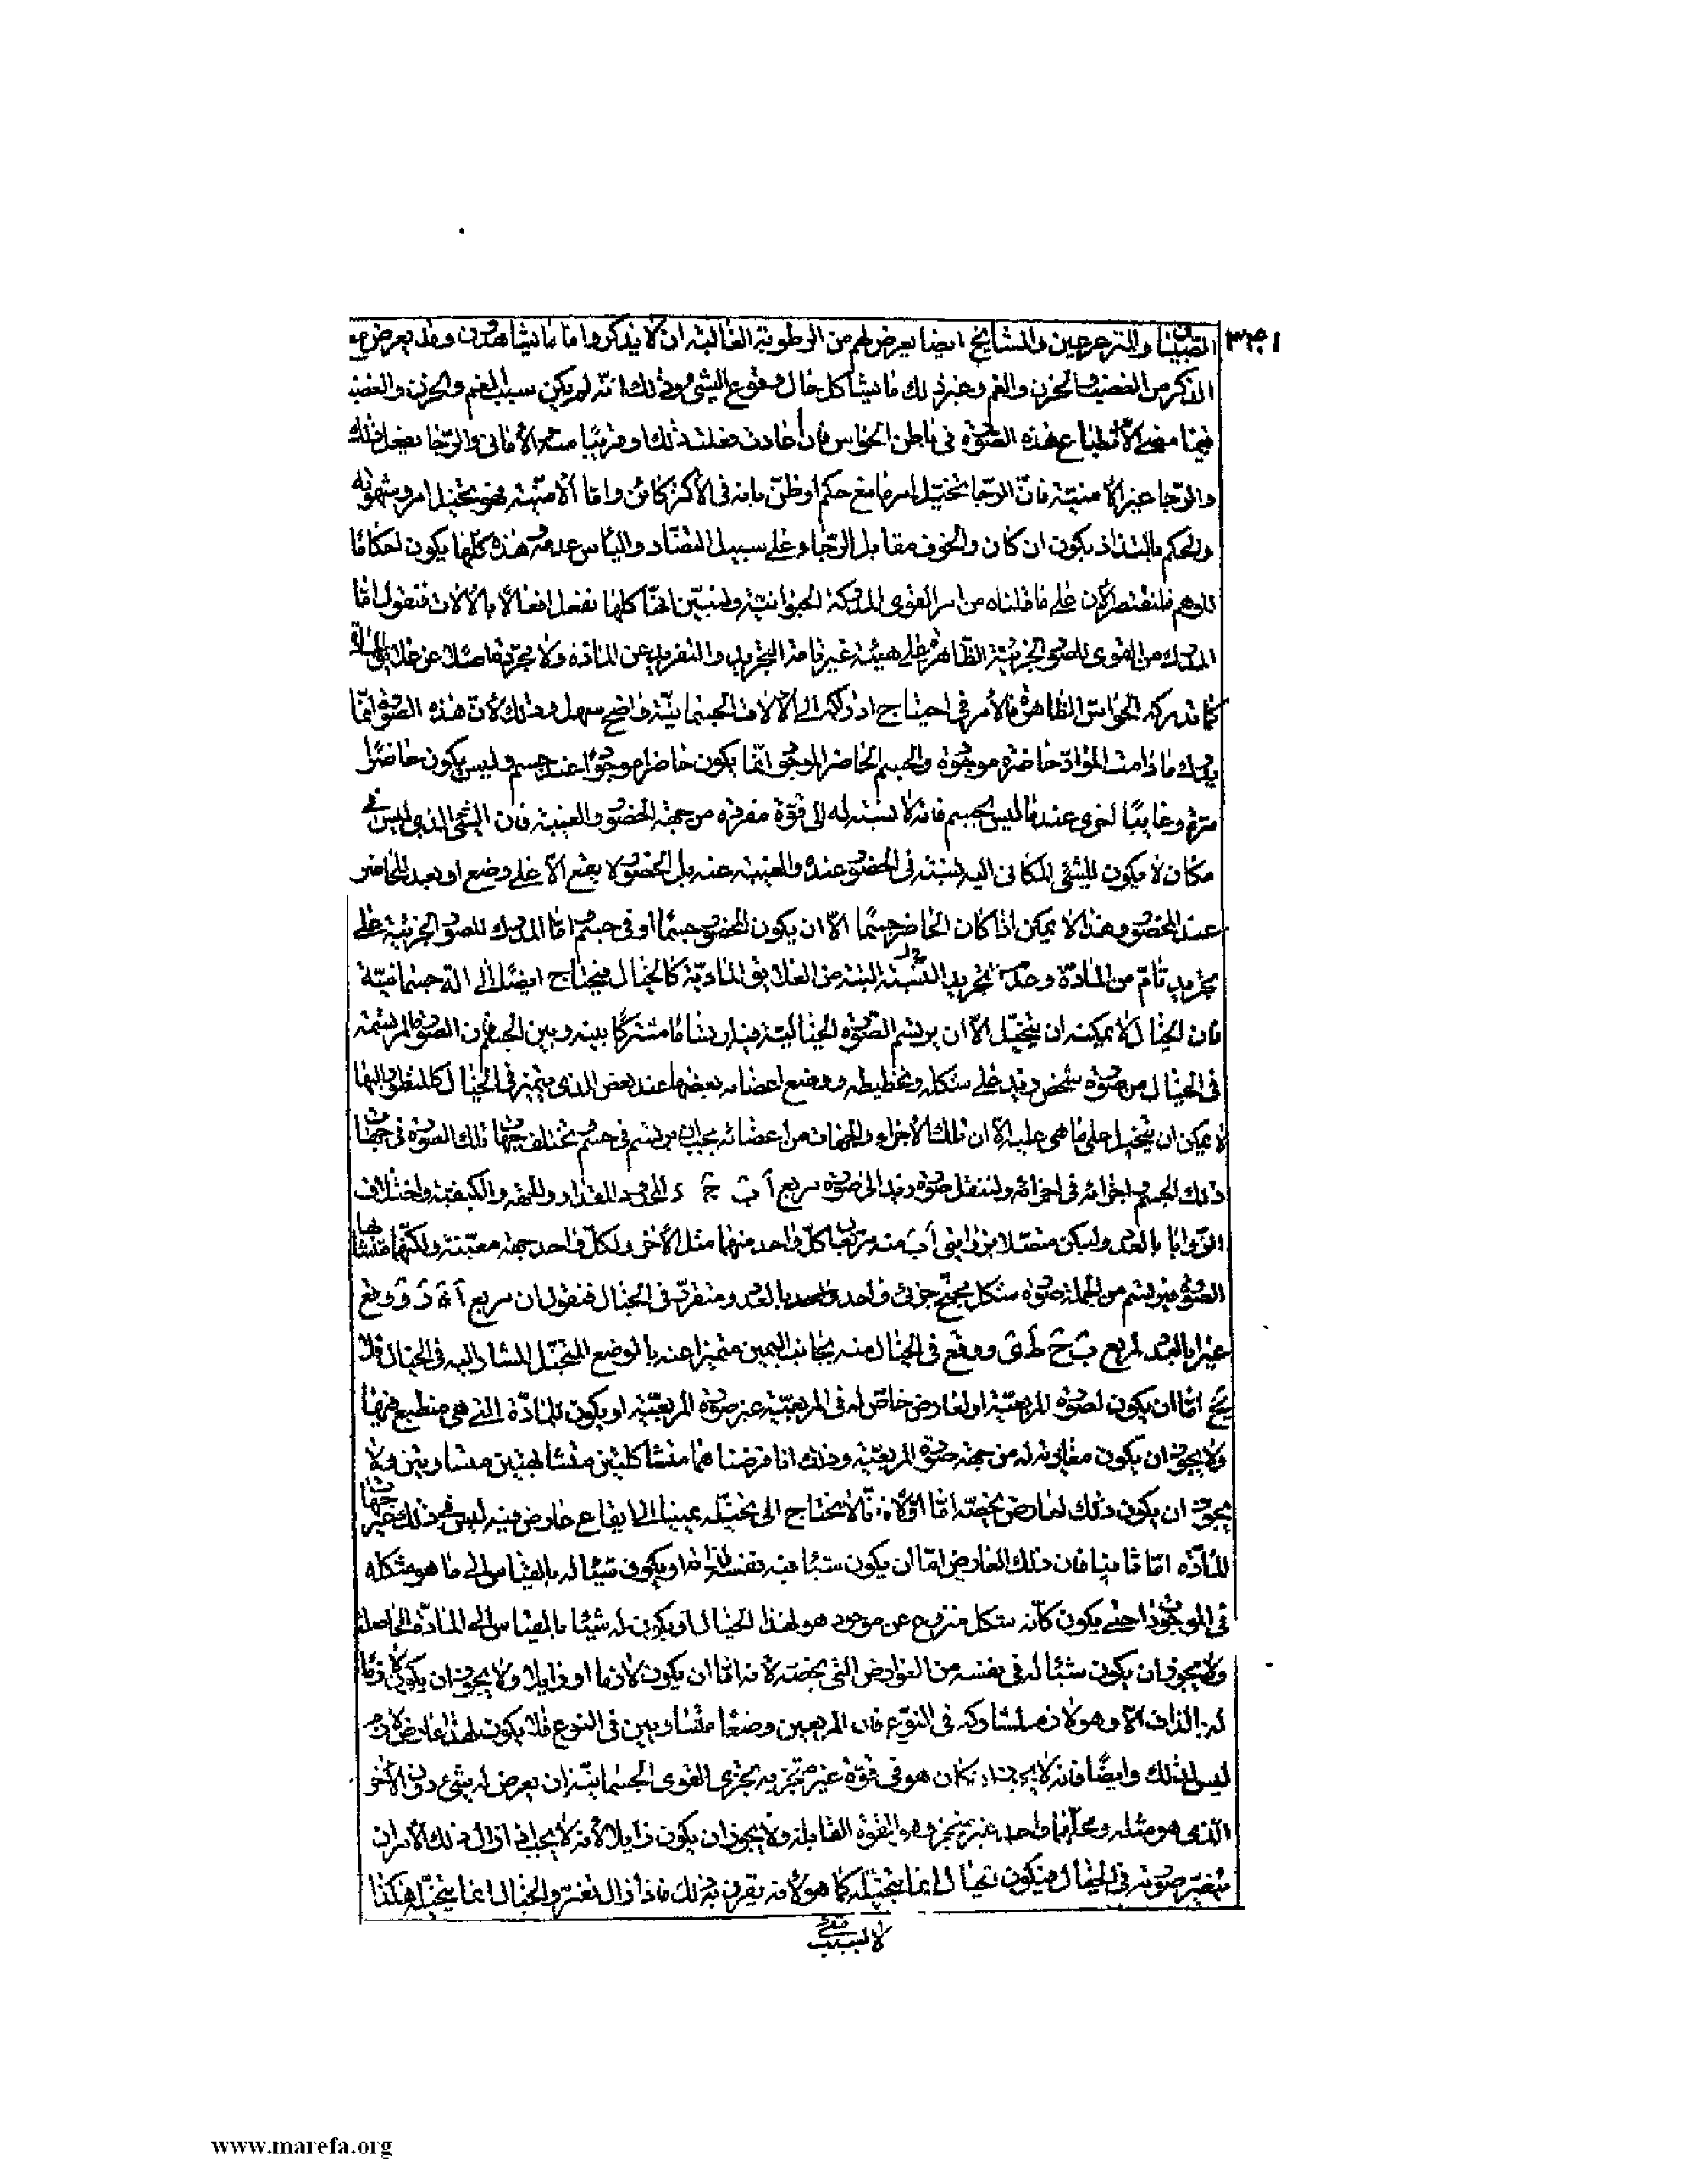 ٣٤١
الصبيان والمترعرعين والمشايخ ايضا يعرض لهم من الرطوبة الغالبة ان لا يذكروا ما يشاهدون وقد يعرض مع
الذكر من الغضب والحزن والغم وغير ذلك ما يشاكل حال وقوع الشئ وذلك انه لم يكن سبب الغم والحزن والغضب
فيما مضى الا انطباع هذه الصورة فى باطن الحواس فاذا عادت فعلت ذلك او قريبا منه والأمانى والرجا يفعل ذلك
والرجا غير الأمنية فان الرجا تخيل امر ما مع حكم او ظن بانه فى الأكثر كائن واما الأمنية فهو تخيل امر وشهوته
والحكم بالتذاذ يكون ان كان والخوف مقابل الرجاء على سبيل التضاد والياس عدمه وهذه كلها يكون احكاما
للوهم فلنقتصر الآن على ما قلناه من امر القوى المدركة الحيوانية ولنبين انها كلها تفعل افعالا بالآلات فنقول اما
المدرك من القوى للصور الجزئية الظاهرة على هيئة غير تامة التجريد والتفريد عن المادة ولا مجردة اصلا عن علايق المادة
كما تدركه الحواس الظاهرة فالأمر فى احتياج ادراكه الى الآلات الجسمانية واضح سهل وذلك لأن هذه الصور انما
يدرك ما دامت المواد حاضرة موجودة والجسم الحاضر الموجود انما يكون حاضرا موجودا عند جسم وليس يكون حاضرا
مرة وغايبا اخرى عند ما ليس بجسم فانه لا نسبة له الى قوة مفردة من جهة الحضور والغيبة فان الشئ الذى ليس فى
مكان لا يكون للشئ المكانى اليه نسبة فى الحضور عنده والغيبة عنه بل الحضور لا يقع الا على وضع او بعد للحاضر
عند المحضور وهذا لا يمكن اذا كان الحاضر جسما الا ان يكون المحضور جسما او فى جسم اما المدرك للصور الجزئية على
تجريد تام من المادة وعدم تجريد البتة من العلايق المادية كالخيال فيحتاج ايضا الى آلة جسمانية
فان الخيال لا يمكنه ان يتخيل الا ان يرتسم الصورة الخيالية فيه ارتساما مشتركا بينه وبين الجسم فان الصورة المرتسمة
فى الخيال من صورة شخص زيد على شكله وتخطيطه ووضع اعضائه بعضها عند بعض الذى يتميز فى الخيال كالمنظور اليها
لا يمكن ان يتخيل على ما هى عليه الا ان تلك الأجزاء والجهات من اعضائه يجب ان يرتسم فى جسم تختلف جهات تلك الصورة فى جهات
ذلك الجسم واجزائه فى اجزائه ولننقل صورة زيد الى صورة مربع آ ب ج د المحدود المقدار والجهة والكيفية واختلاف
الزوايا بالعدد وليكن متصلا بزاويتى آ ب منه مربعان كل واحد منهما مثل الآخر ولكل واحد جهة معينة ولكنهما متشابها
الصورة فيرتسم من الجملة صورة شكل مجنح جزئى واحد بالعدد ومتقرر فى الخيال فنقول ان مربع آ ه ز و وقع
غيرا بالعدد لمربع ب ح ط ى ووقع فى الخيال منه بجانب اليمين متميزا عنه بالوضع المتخيل المشار اليه فى الخيال فلا
يخ اما ان يكون لصورة المربعية او لعارض خاص له فى المربعية غير صورة المربعية او يكون للمادة التى هى منطبع فيها
ولا يجوز ان يكون مغايرته له من جهة صورة المربعية وذلك انا فرضنا هما متشاكلين متشابهين متساويين ولا
يجوز ان يكون ذلك لعارض يخصه اما اولا فانا لا نحتاج الى تخيله يمينا الى ايقاع عارض فيه ليس فى ذلك غير جهات
المادة اما ثانيا فان ذلك العارض اما ان يكون شيئا فيه نفسه لذاته او يكون شيئا له بالقياس الى ما هو شكله
فى الموجود ذا حتى يكون كأنه شكل منزوع عن موجود هو لهذا الخيال او يكون له شيئا بالقياس الى المادة الحاملة
ولا يجوز ان يكون شيئا له فى نفسه من العوارض التى يخصه لأنه اما ان يكون لازما او زايلا ولا يجوز ان يكون لازما
له بالذات الا وهو لازم لمشاركه فى النوع فان المربعين وضعا متساويين فى النوع فلا يكون لهذا عارض لازم
ليس لذلك وايضا فانه لا يجوز ان كان هو فى قوة غير متجزيه تجزى القوى الجسمانية ان يعرض له شئ دون الآخر
الذى هو مثله ومحلهما واحد غير متجز وهو القوة القابلة ولا يجوز ان يكون زايلا لأنه لا يجب اذا زال ذلك الأمر ان
يتغير صورته فى الخيال فيكون الخيال انما يتخيله كما هو لأنه يقرن به ذلك فاذا زال تغير والخيال انما يتخيله هكذا
لا بسبب
www.marefa.org